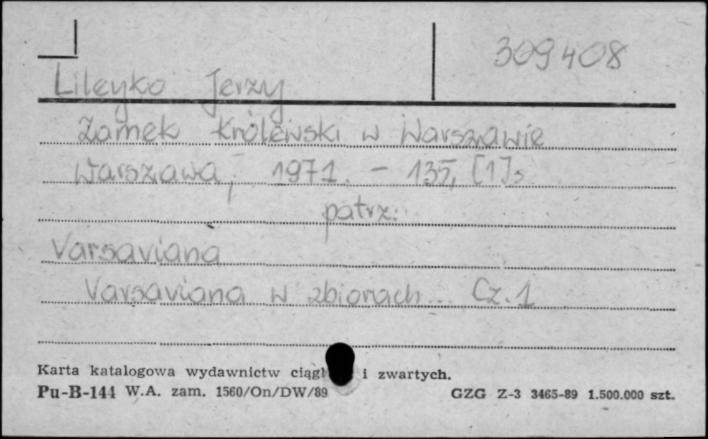 309408
Lileyko Jerzy
Zamek Królewski w Warszawie
Warszawa, 1971. - 135, [1] s
patrz:
Varsaviana
Varsaviana w zbiorach... Cz. 1
Karta katalogowa wydawnictw i zwartych.
Pu-B-144 W.A. zam. 1560/On/DW/89 GZG Z-3 3465-89 1.500.000 szt.